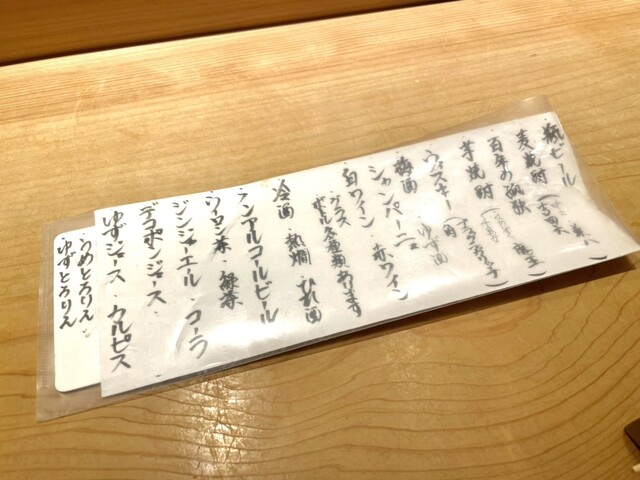 瓶ビール
麦焼酎
百年の孤独
芋焼酎
ウィスキー(角)
梅酒・ゆず酒
シャンパーニュ
白ワイン 赤ワイン
グラス
ボトル各種類あります
冷酒・熱燗・ひれ酒
ノンアルコールビール
ウーロン茶・緑茶
ジンジャーエール・コーラ
デコポンジュース・
ゆずジュース・カルピス
・うめとろりん
・ゆずとろりん